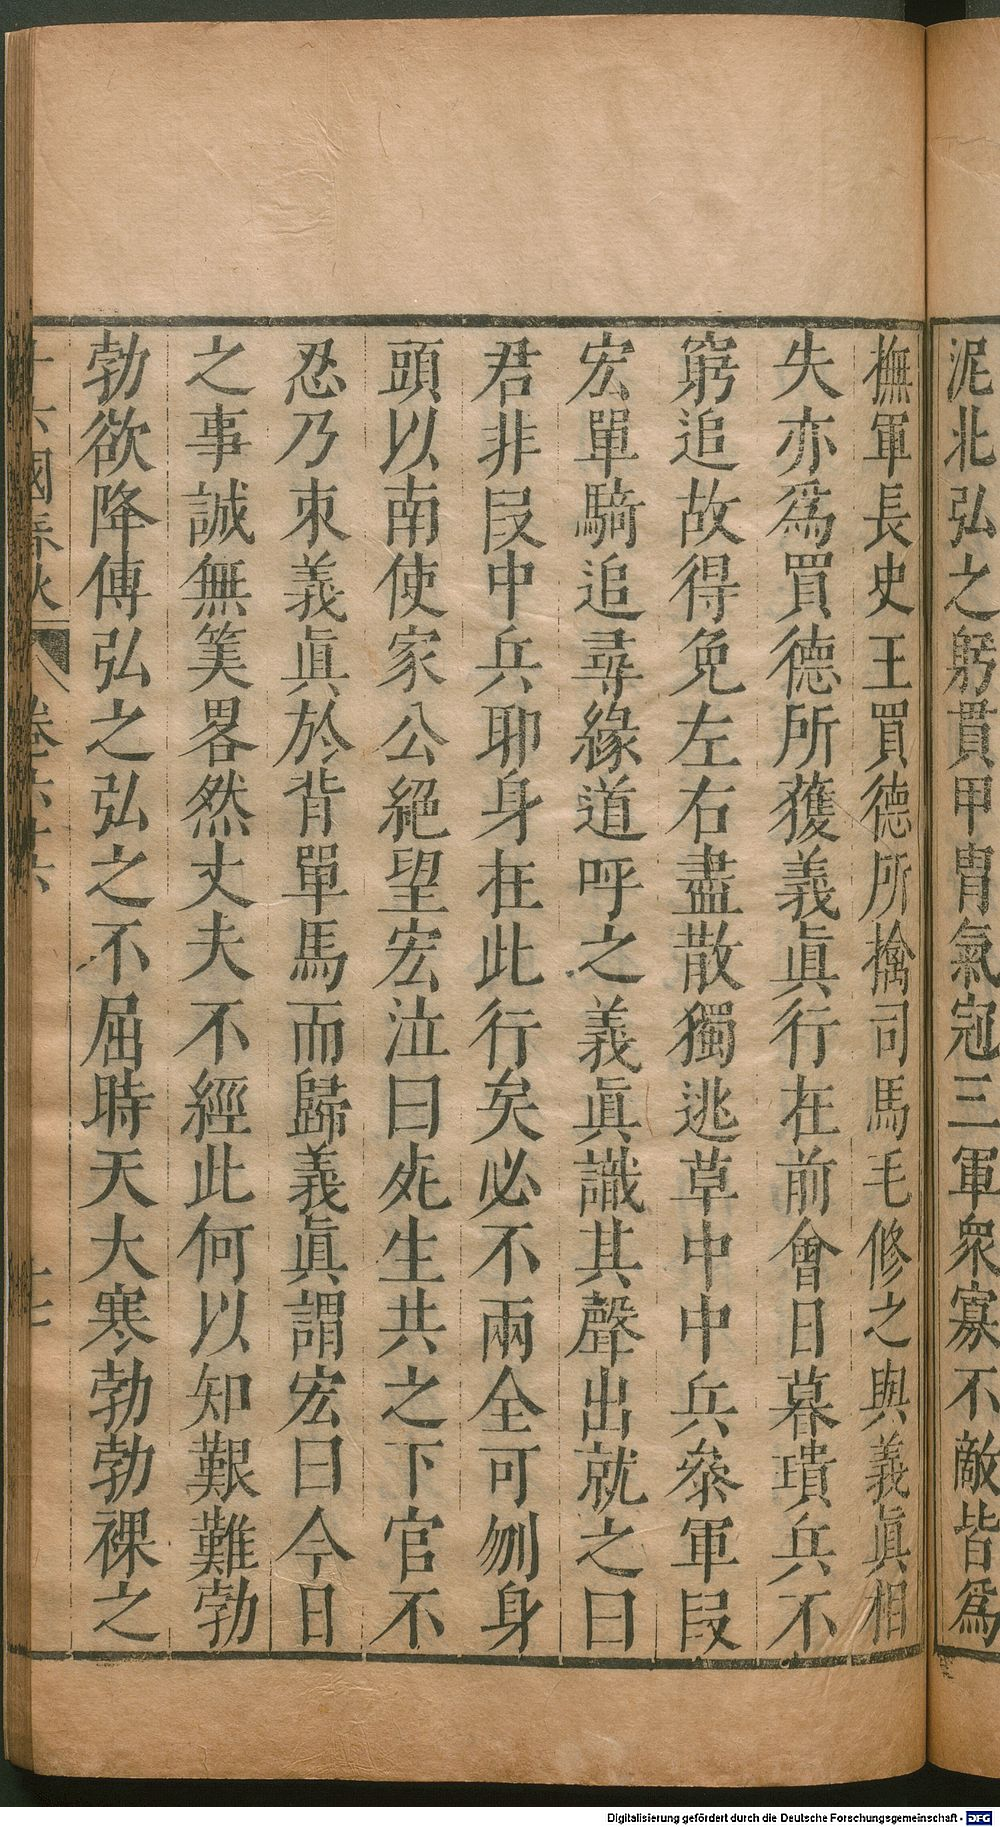 泥北弘之躬貫甲冑氣冠三軍衆寡不敵皆爲
撫軍長史王買德所擒司馬毛修之與義眞相
失亦爲買德所獲義眞行在前會日暮璝兵不
窮追故得免左右盡散獨逃草中中兵叅軍段
宏單騎追尋緣道呼之義眞識其聲出就之曰
君非段中兵耶身在此行矣必不兩全可刎身
頭以南使家公絕望宏泣曰死生共之下官不
忍乃束義眞於背單馬而歸義眞謂宏曰今日
之事誠無筭畧然丈夫不經此何以知艱難勃
勃欲降傅弘之弘之不屈時天大寒勃勃裸之
十六國春秋 卷六十六 十七
Digitalisierung gefördert durch die Deutsche Forschungsgemeinschaft - DFG